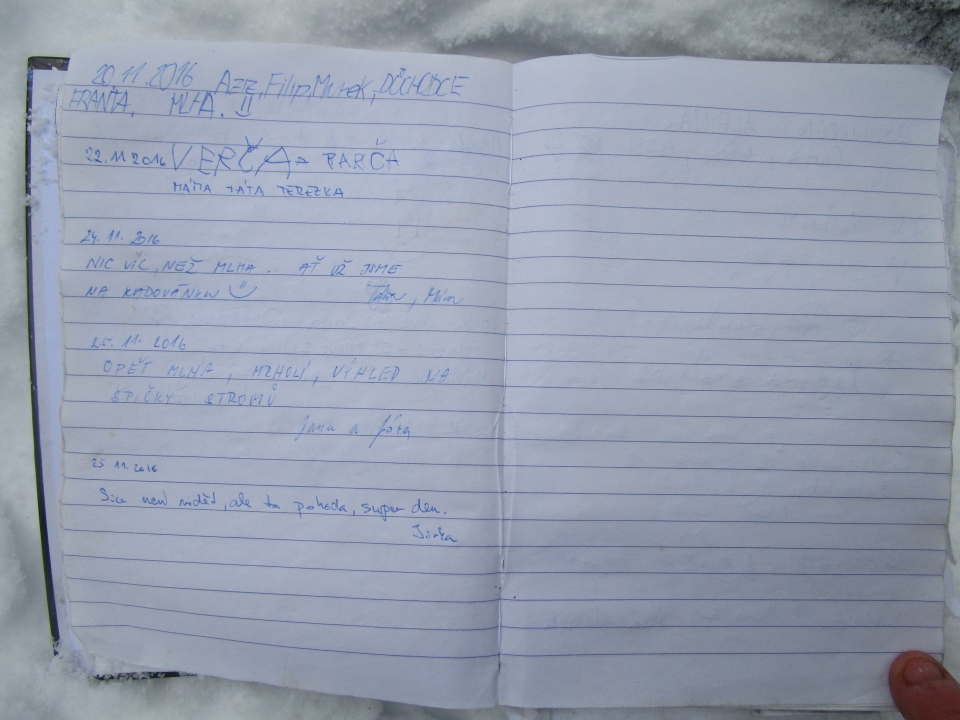 20.11.2016 Filip, Marek, DŮCHODCE
FRANTA. MLHA. !!
22.11 2016 VERČA + PARČA
MÁMA TÁTA TEREZKA
24. 11. 2016
NIC VÍC, NEŽ MLHA ... AŤ UŽ JSME
NA RADOVÁNKU
25. 11. 2016
OPĚT MLHA, MRHOLÍ, VÝHLED NA
ŠPIČKY STROMŮ
Jana a Jára
25. 11. 2016
Sice není vidět, ale ta pohoda, super den.
Jirka